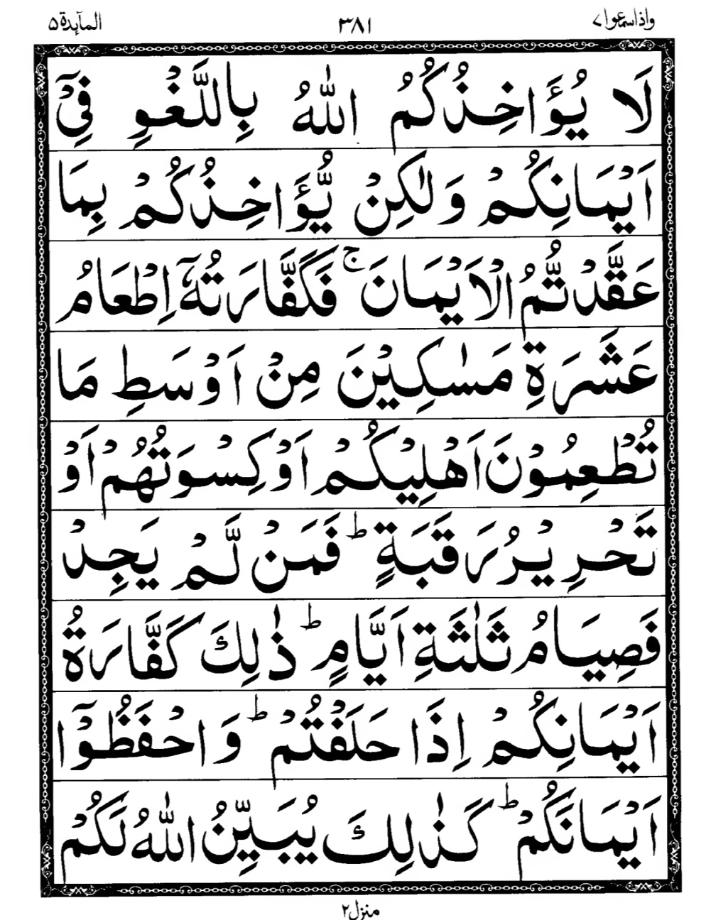 واذاسمعوا٧ ٣٨١ المآىٕدة٥
لَا يُؤَاخِذُكُمُ اللّٰهُ بِاللَّغْوِ فِىْٓ
اَيْمَانِكُمْ وَلٰكِنْ يُّؤَاخِذُكُمْ بِمَا
عَقَّدْتُّمُ الْاَيْمَانَ ۚ فَكَفَّارَتُهٗٓ اِطْعَامُ
عَشَرَةِ مَسٰكِيْنَ مِنْ اَوْسَطِ مَا
تُطْعِمُوْنَ اَهْلِيْكُمْ اَوْ كِسْوَتُهُمْ اَوْ
تَحْرِيْرُ رَقَبَةٍ ؕ فَمَنْ لَّمْ يَجِدْ
فَصِيَامُ ثَلٰثَةِ اَيَّامٍ ؕ ذٰلِكَ كَفَّارَةُ
اَيْمَانِكُمْ اِذَا حَلَفْتُمْ ؕ وَ احْفَظُوْٓا
اَيْمَانَكُمْ ؕ كَذٰلِكَ يُبَيِّنُ اللّٰهُ لَكُمْ
منزل٢